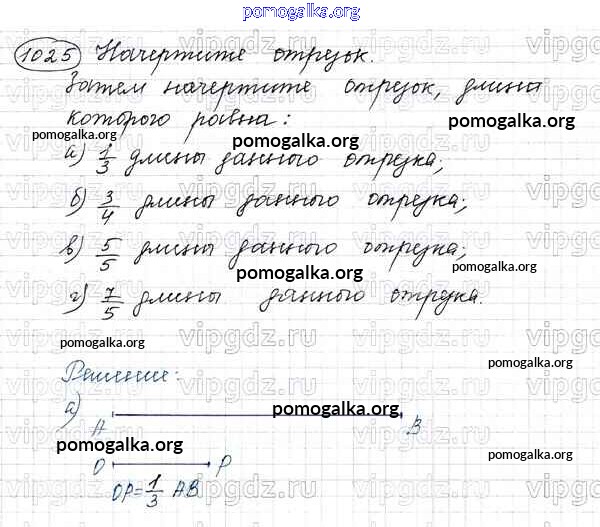 pomogalka.org
1025 Начертите отрезок.
Затем начертите отрезок, длина
которого равна:
pomogalka.org
pomogalka.org
а) 1/3 длины данного отрезка;
б) 3/4 длины данного отрезка;
в) 5/5 длины данного отрезка;
pomogalka.org
pomogalka.org
г) 7/5 длины данного отрезка.
vipgdz.ru
pomogalka.org
Решение:
а)
A pomogalka.org B
pomogalka.org
O P
OP = 1/3 AB